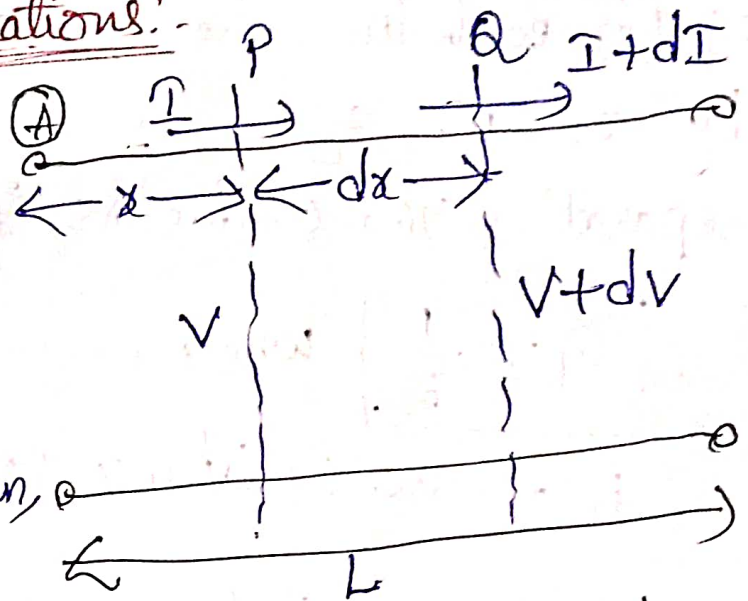 ations:-
P Q I+dI
A I
x dx
V V+dV
n,
L